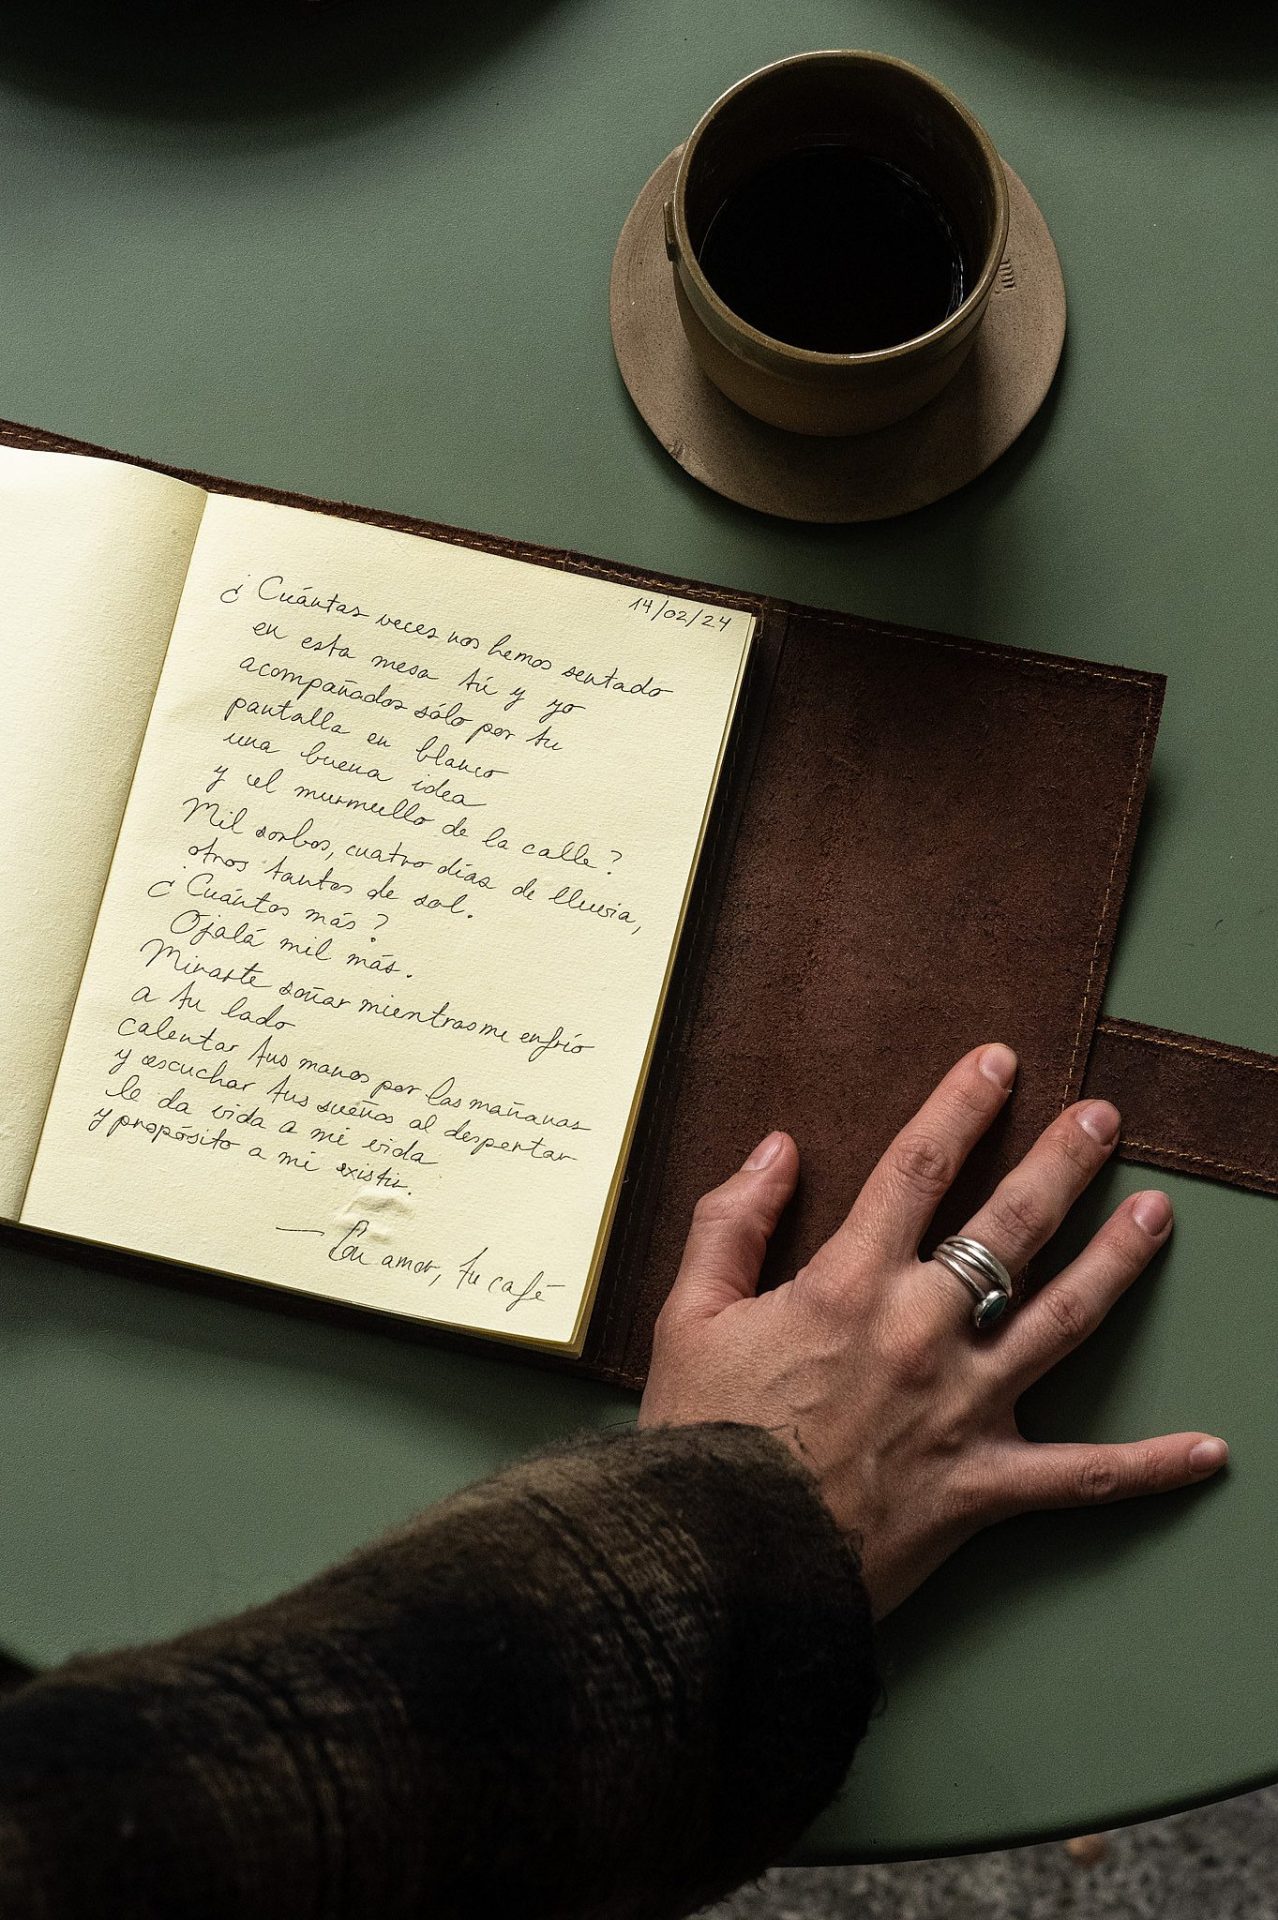 14/02/24
¿Cuántas veces nos hemos sentado
en esta mesa tú y yo
acompañados sólo por tu
pantalla en blanco
una buena idea
y el murmullo de la calle?
Mil sorbos, cuatro días de lluvia,
otros tantos de sol.
¿Cuántos más?
Ojalá mil más.
Mirarte soñar mientras me enfrío
a tu lado
calentar tus manos por las mañanas
y escuchar tus sueños al despertar
le da vida a mi vida
y propósito a mi existir.
— Con amor, tu café